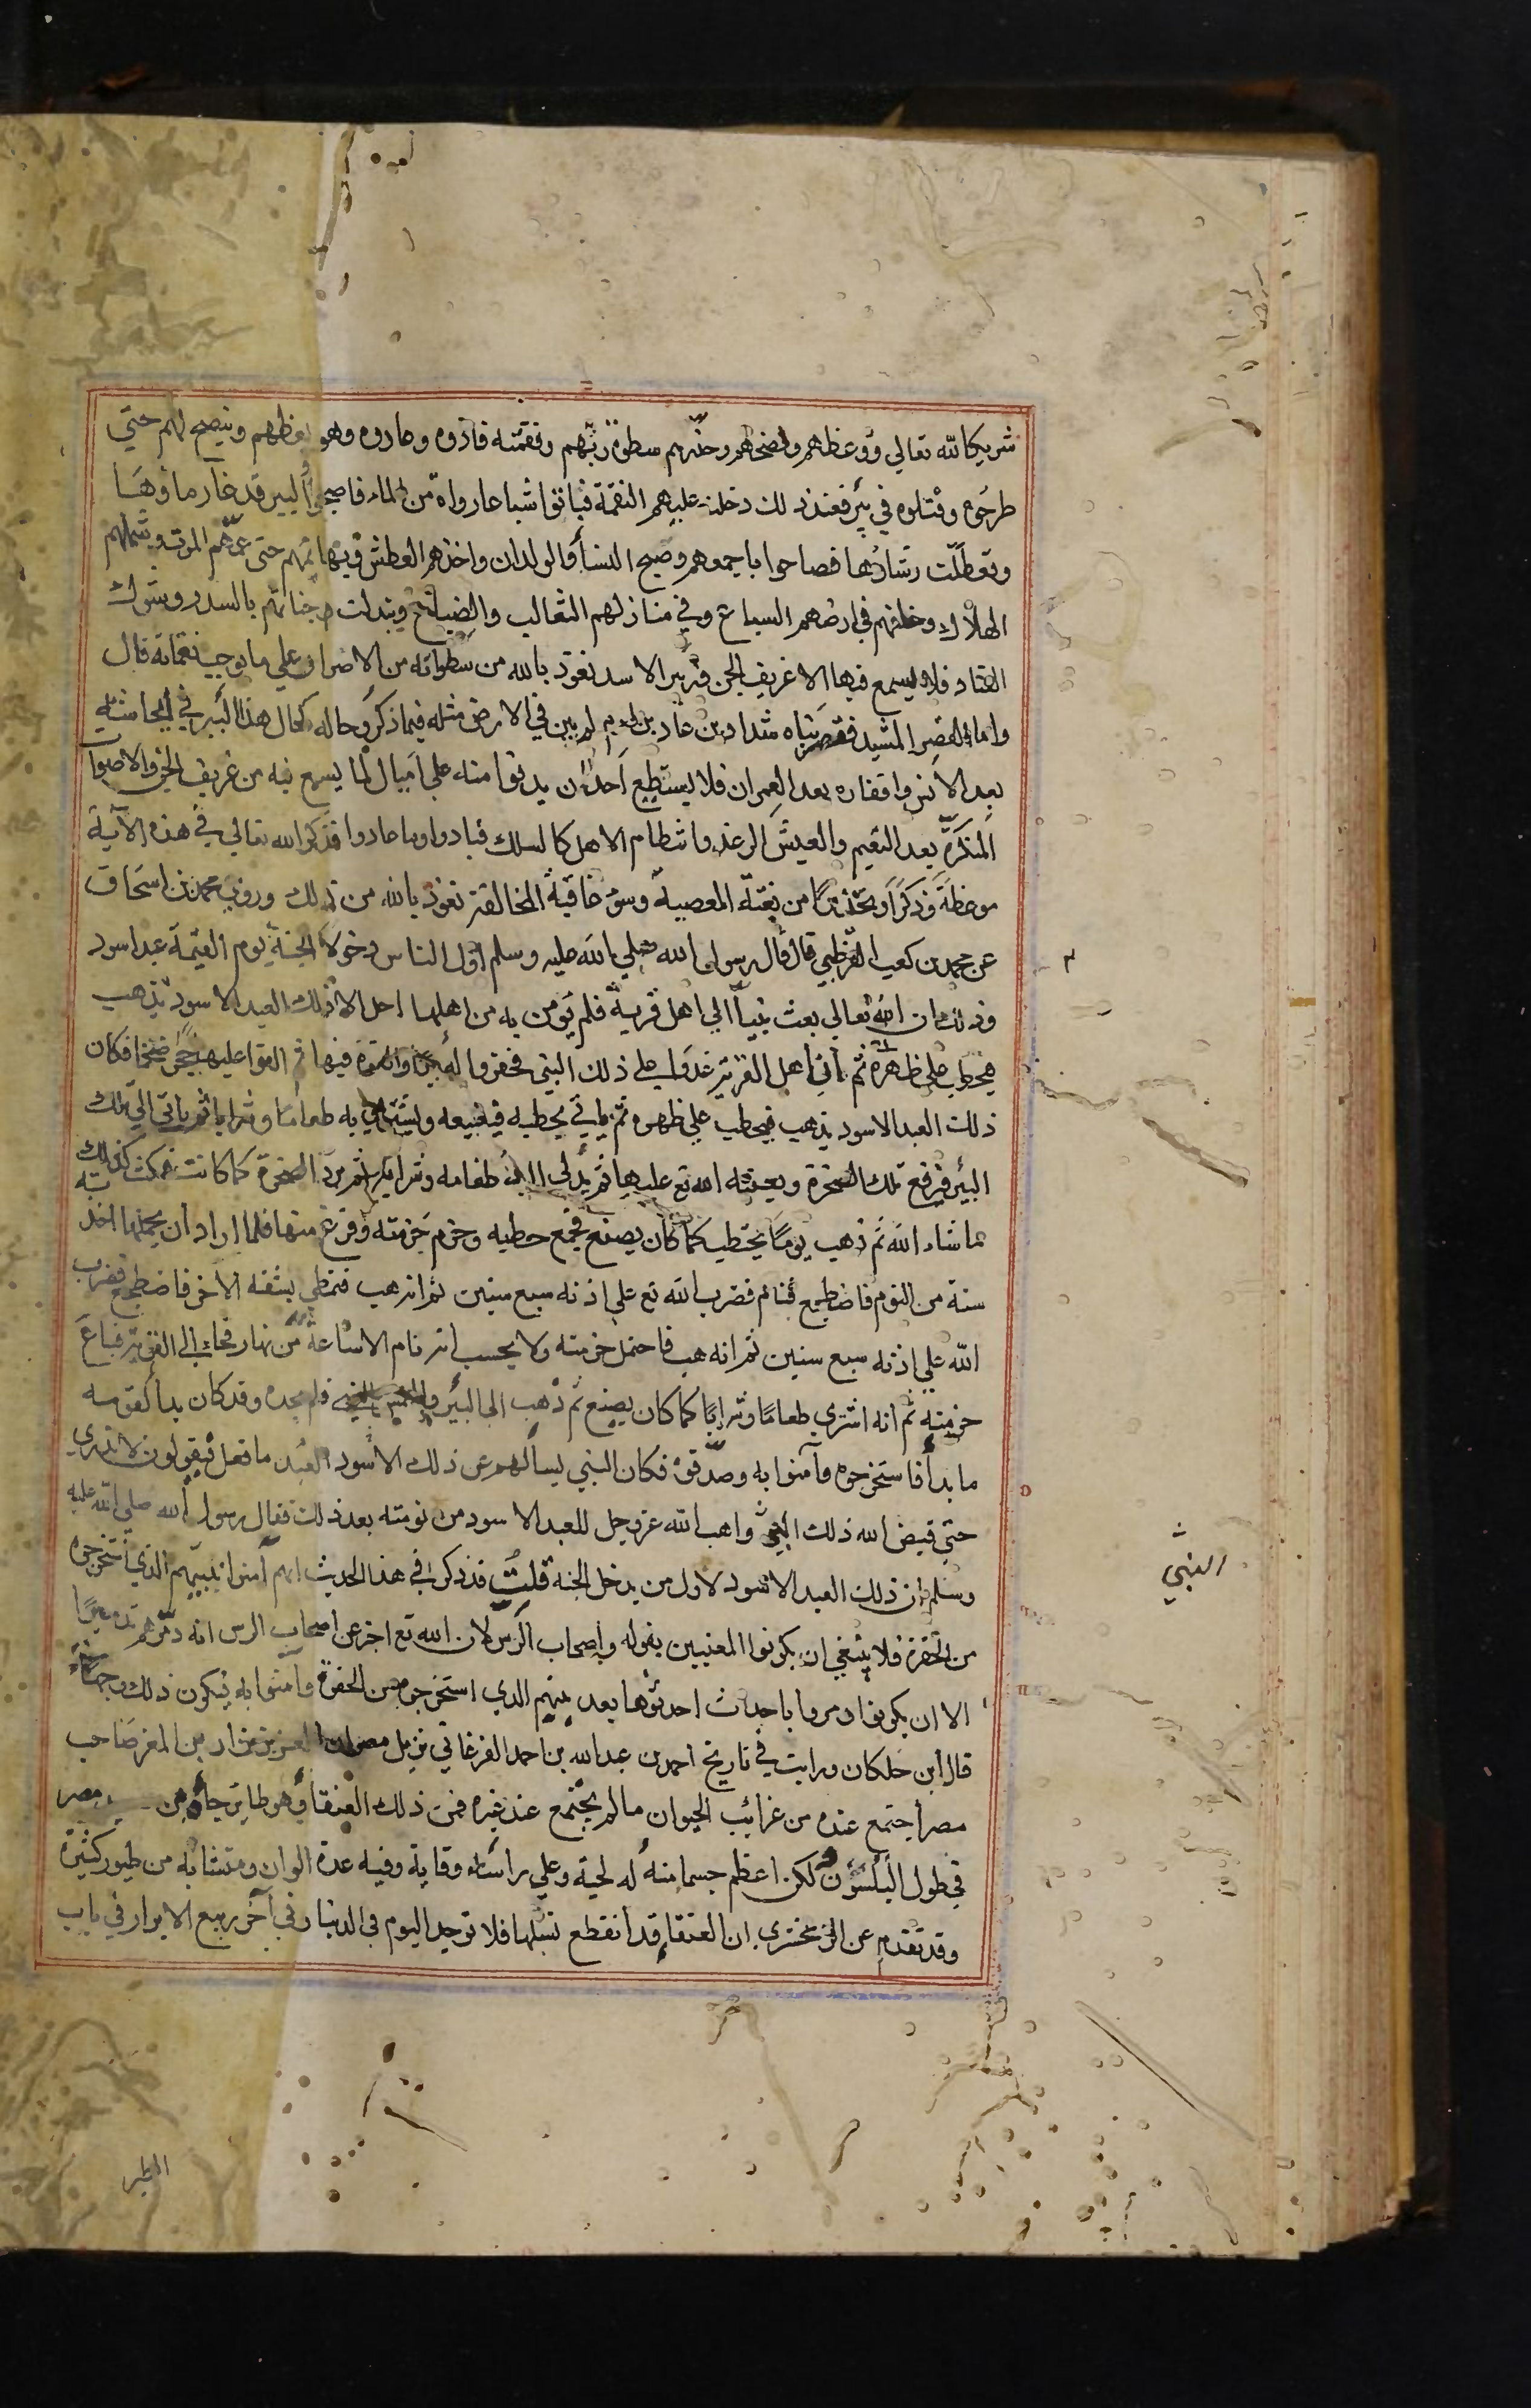 شريكا لله تعالي ووعظهم ونصحهم وحذرهم سطوة ربهم ونقمته فاذوه وعادوه وهو يعظهم وينصح لهم حتي
طرحوه وقتلوه في بئر فعند ذلك دخلت عليهم النقمة فباتوا شباعا رواة من الماء فاصبحوا والبير قد غار ماؤها
وتعطلت رشاؤها فصاحوا باجمعهم وضج النسأ والولدان واخذهم العطش وبهائمهم حتى عمهم الموت وشملهم
الهلاك وخلفهم في ارضهم السباع وفي منازلهم الثعالب والضباع وتبدلت جناتهم بالسدر وشوك
القتاد فلا يسمع فيها الا عزيف الجن وزئير الاسد نعوذ بالله من سطواته من الاصرار علي ما يوجب نقماته قال
واما القصر المشيد فقصر بناه شداد بن عاد بن ارم لم يبن في الارض مثله فيما ذكر وحاله كحال هذا البير في ايحاشه
بعد الانس واقفاره بعد العمران فلا يستطيع احد ان يدنوا منه علي اميال لما يسمع فيه من عزيف الجن والاصوات
المنكرة بعد النعيم والعيش الرغد وانتظام الاهل كالسلك فبادوا وما عادوا فذكر الله تعالي في هذه الآية
موعظة وذكرا وتحذيرا من مغبة المعصية وسوء عاقبة المخالفة نعوذ بالله من ذلك وروي محمد بن اسحاق
عن محمد بن كعب القرظي قال قال رسول الله صلي الله عليه وسلم اول الناس دخولا الجنة يوم القيمة عبد اسود
وذلك ان الله تعالي بعث نبيا الي اهل قرية فلم يؤمن به من اهلها احد الا ذلك العبد الاسود يذهب
فيحطب علي ظهره ثم ان اهل القرية غدوا علي ذلك النبي فحفروا له بيرا والقوه فيها ثم القوا عليها حجرا ضخما فكان
ذلك العبد الاسود يذهب فيحطب علي ظهره ثم ياتي بحطبه فيبيعه ويشتري به طعاما وشرابا ثم ياتي الي تلك
البئر فيرفع تلك الصخرة ويعينه الله تع عليها ثم يدلي اليه طعامه وشرابه ثم يرد الصخرة كما كانت فمكث كذلك
ما شاء الله ثم ذهب يوما يحتطب كما كان يصنع فجمع حطبه وحزم حزمته وفرغ منها فلما اراد ان يحملها اخذته
سنة من النوم فاضطجع فنام فضرب الله تع علي اذنه سبع سنين ثم انه هب فتمطي بشقه الاخر فاضطجع فضرب
الله علي اذنه سبع سنين ثم انه هب فاحتمل حزمته ولا يحسب انه نام الا ساعة من نهار فجاء الي القرية فباع
حزمته ثم انه اشتري طعاما وشرابا كما كان يصنع ثم ذهب الي البئر والتمس النبي فلم يجده وقد كان بدأ لقومه
ما بدأ فاستخرجوه وآمنوا به وصدقوه فكان النبي يسألهم عن ذلك الاسود العبد ما فعل فيقولون لا ندري
حتي قبض الله ذلك النبي واهب الله عز وجل للعبد الاسود من نومته بعد ذلك فقال رسول الله صلي الله عليه
وسلم ان ذلك العبد الاسود لاول من يدخل الجنة قلت قد ذكر في هذا الحديث انهم آمنوا بنبيهم الذي استخرجوه
من الحفرة فلا ينبغي ان يكونوا المعنيين بقوله واصحاب الرس لان الله تع اخبر عن اصحاب الرس انه دمرهم تدميرا
الا ان يكونوا دمروا باحداث احدثوها بعد نبيهم الذي استخرجوه من الحفرة وامنوا به فيكون ذلك وجها
قال ابن خلكان ورايت في تاريخ احمد بن عبد الله بن احمد الفرغاني نزيل مصر ان العزيز نزار بن المعز صاحب
مصر اجتمع عنده من غرائب الحيوان ما لم يجتمع عند غيره فمن ذلك العنقأ وهو طاير جاءه من مصر
في طول البلشون لكن اعظم جسما منه له لحية وعلي رأسه وقاية وفيه عدة الوان ومتشابه من طيور كثيرة
وقد تقدم عن الزمخشري ان العنقا قد انقطع نسلها فلا توجد اليوم في الدنيا وفي آخر ربيع الابرار في باب
النبي
الطير